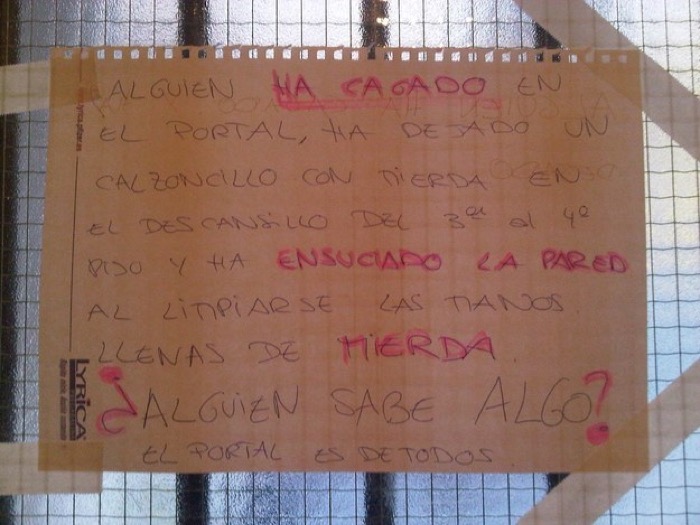 ALGUIEN HA CAGADO EN
EL PORTAL, HA DEJADO UN
CALZONCILLO CON MIERDA EN
EL DESCANSILLO DEL 3º al 4º
PISO Y HA ENSUCIADO LA PARED
AL LIMPIARSE LAS MANOS
LLENAS DE MIERDA.
¿ALGUIEN SABE ALGO?
EL PORTAL ES DE TODOS.
LYRICA